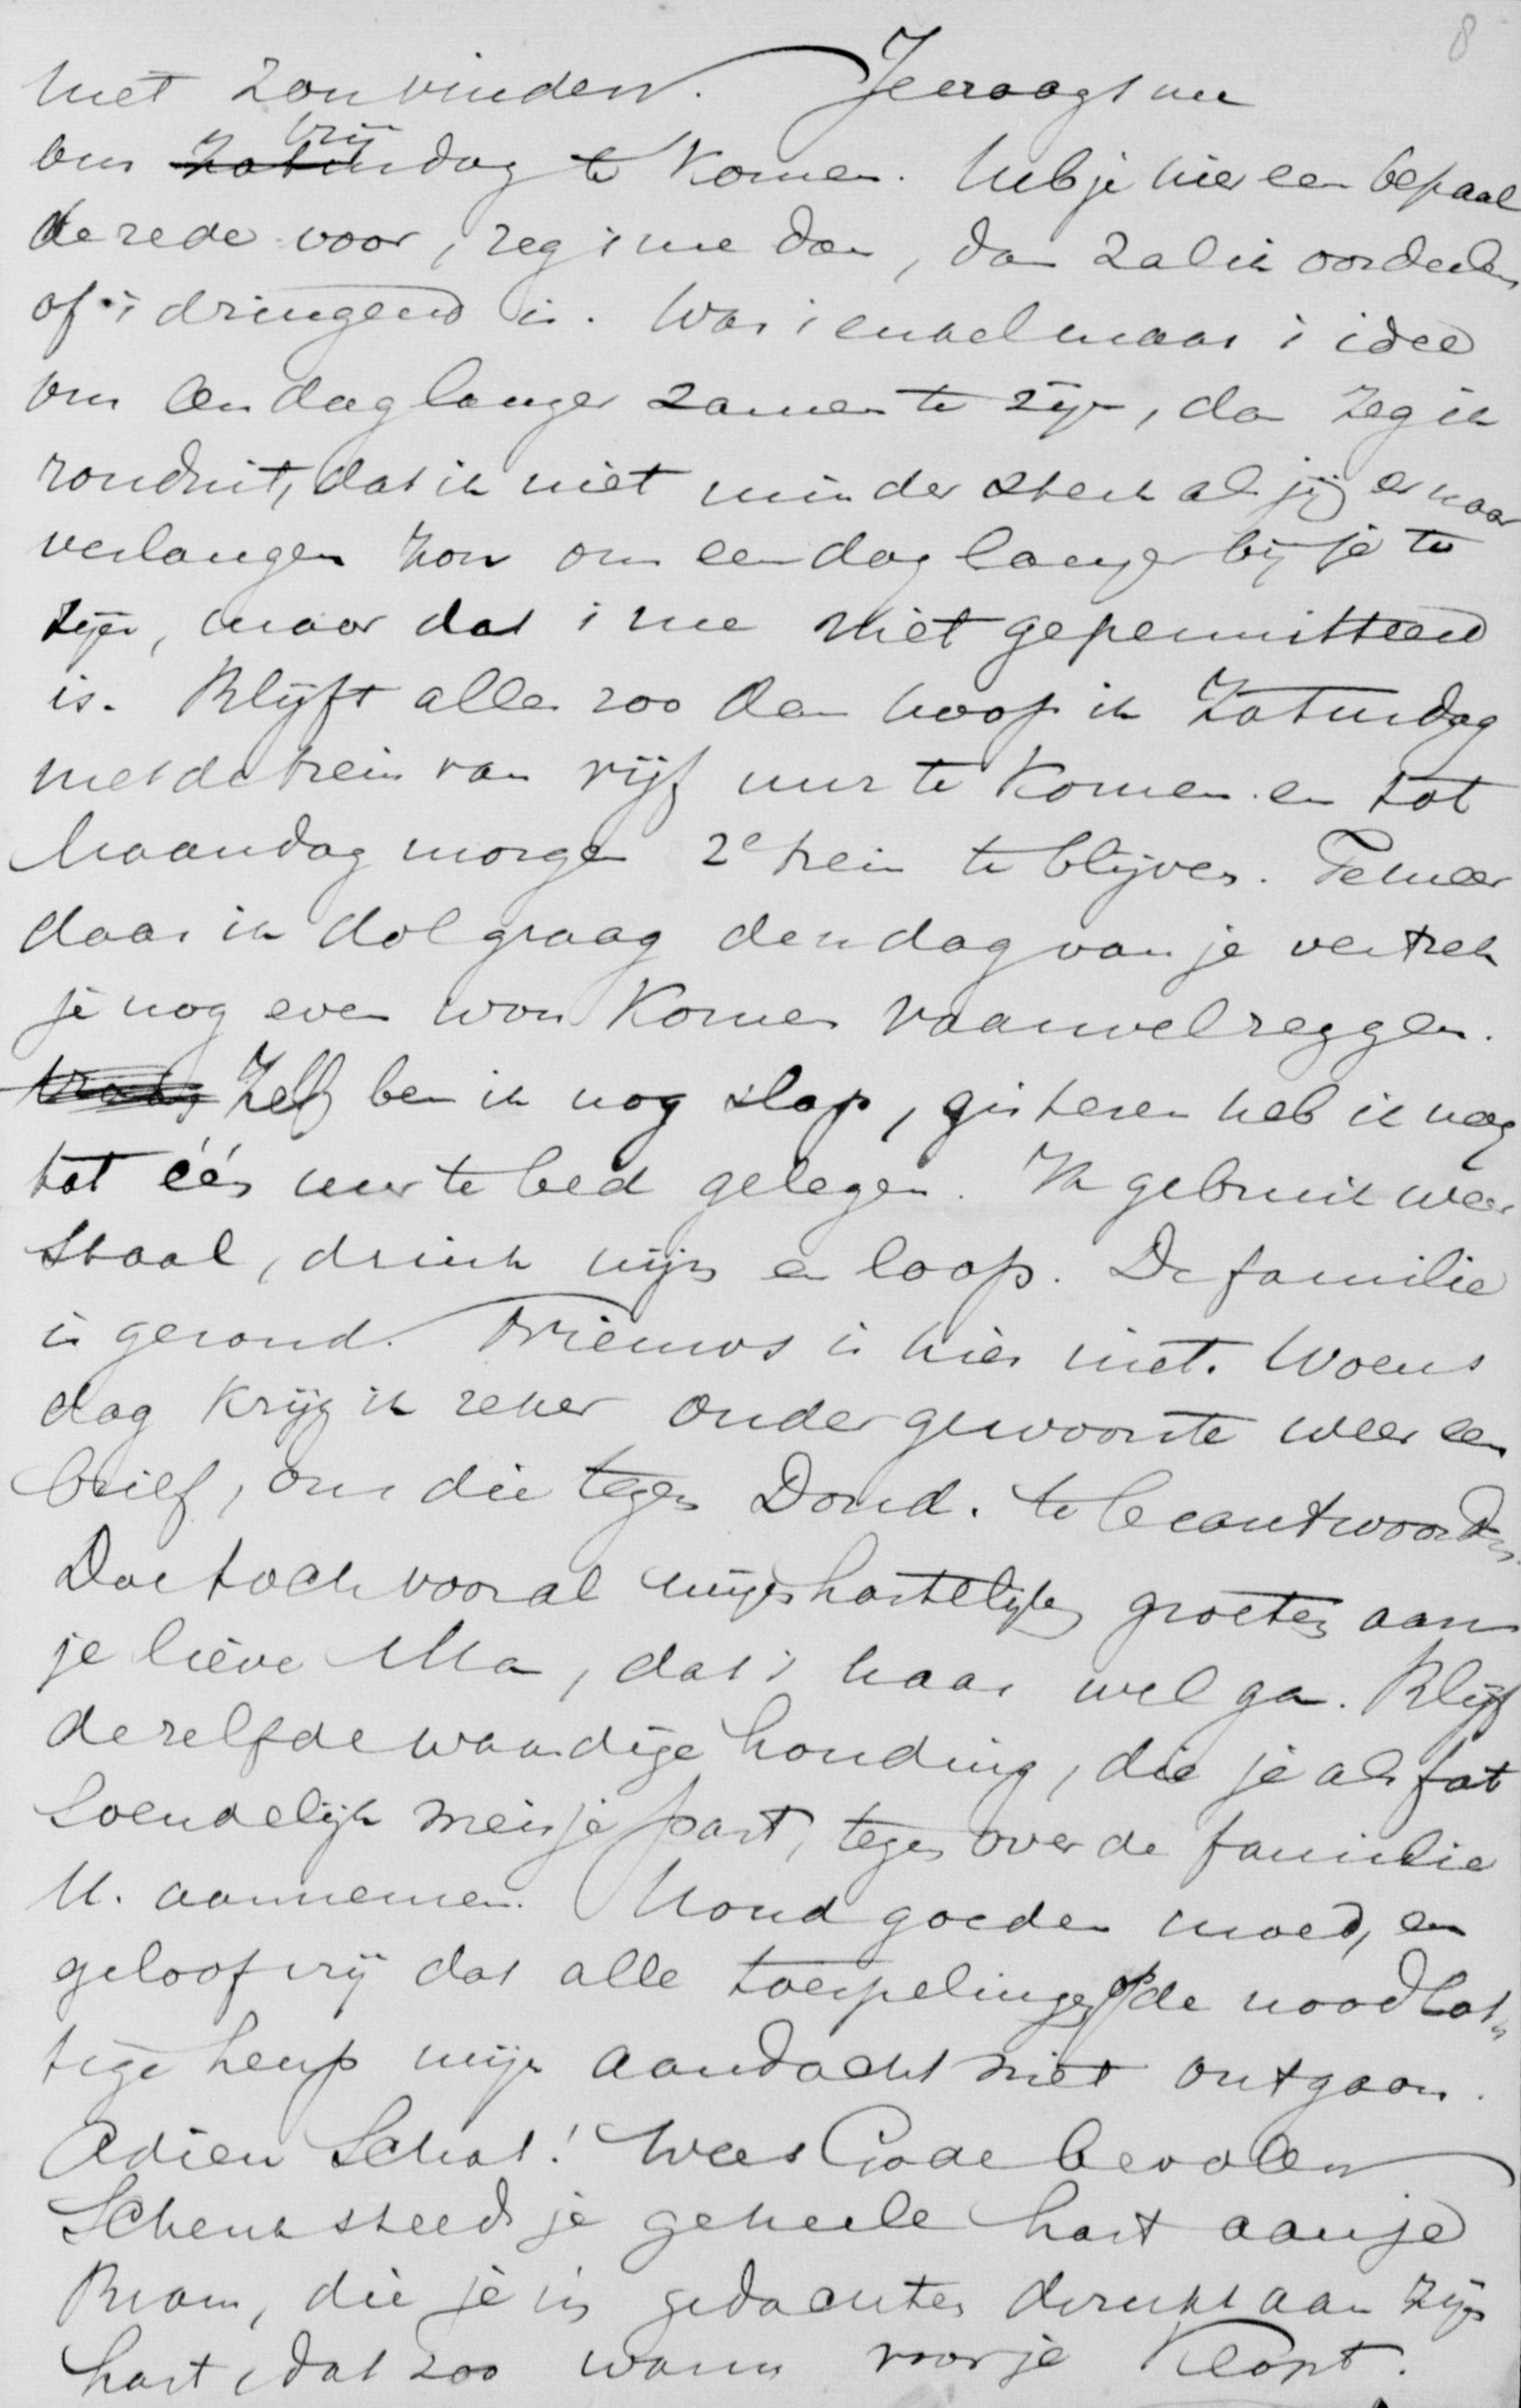 8
niet zou vinden. Je vraagt me
om Vrijdag te komen. Heb je hier een bepaal
de rede voor, zeg 't me dan, dan zal ik oordeelen
of 't dringend is. Was 't enkel maar 't idee
om een dag langer zamen te zijn, dan zeg ik
ronduit, dat ik niet minder sterk als jij er naar
verlangen zou om een dag langer bij je te
zijn, maar dat 't me niet gepermitteerd
is. Blijft alles zoo dan hoop ik Zaturdag
met de trein van vijf uur te komen en tot
Maandag morgen 2e trein te blijven. Temeer
daar ik dolgraag den dag van je vertrek
je nog even wou komen vaarwelzeggen.
Zelf ben ik nog slap, gisteren heb ik nog
tot één uur te bed gelegen. Ik gebruik weer
staal, drink wijn en loop. De familie
is gezond. Nieuws is hier niet. Woens
dag krijg ik zeker ouder gewoonte weer een
brief, om die tegen Dond. te beantwoorden.
Doe toch vooral mijn hartelijke groeten aan
je lieve Ma, dat 't haar wel ga. Blijf
dezelfde waardige houding, die je als fat
soendelijk meisje past, tegenover de familie
U. aannemen. Houd goeden moed, en
geloof vrij dat alle toespelingen op de noodlot
tige heup mijn aandacht niet ontgaan.
Adieu Schat! Wees Gode bevolen
Schenk steeds je geheele hart aan je
Bram, die je in gedachten drukt aan zijn
hart, dat zoo warm voor je klopt.